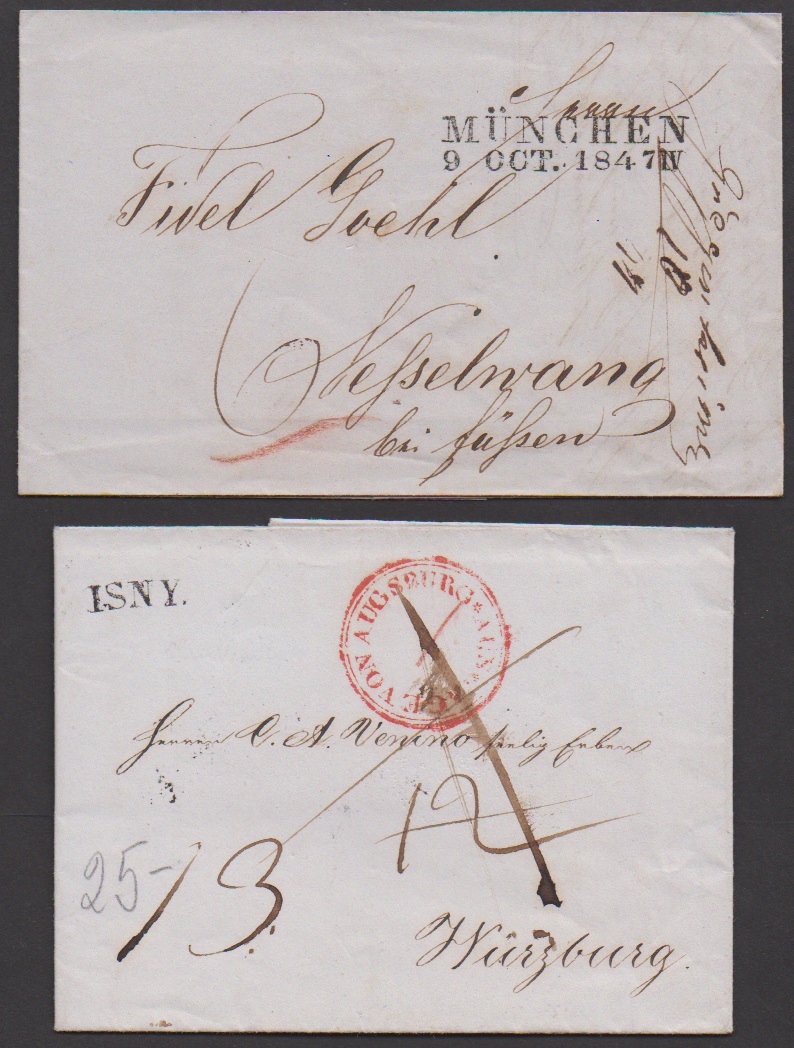 Herrn
MÜNCHEN
9 OCT. 1847 IV
Fidel Goehl
Nesselwang
bei füßen
ISNY.
VON AUGSBURG
Herren C. A. Venino seelig Erben
12
13
25-
Würzburg.